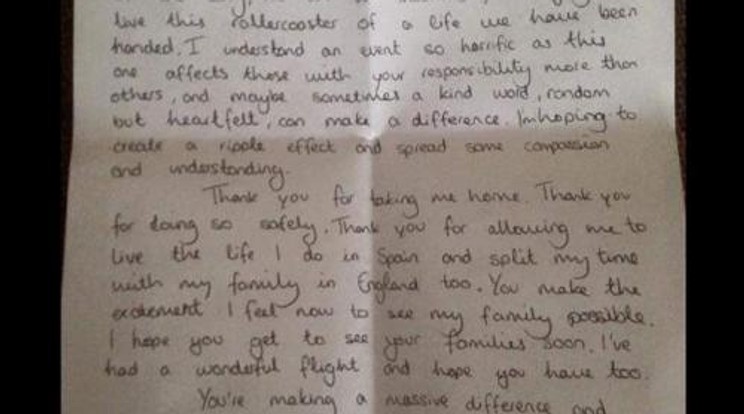 live this rollercoaster of a life we have been
handed. I understand an event so horrific as this
one affects those with your responsibility more than
others, and maybe sometimes a kind word, random
but heartfelt, can make a difference. Im hoping to
create a ripple effect and spread some compassion
and understanding.
Thank you for taking me home. Thank you
for doing so safely. Thank you for allowing me to
live the life I do in Spain and split my time
with my family in England too. You make the
excitement I feel now to see my family possible.
I hope you get to see your families soon. I've
had a wonderful flight and hope you have too.
You're making a massive difference and